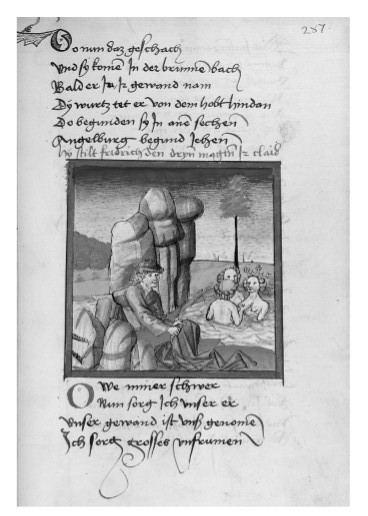 257
Do nun daz geschach
Vnd sy komē In der brunnē bach
Bald er Ir gewand nam
Dy wurtz tet er von dem hobt hindan
Do begunden sy In anē sechen
Angelburg begund Jehen
hy stilt fridrich den dryn magtn Ir claid
Owe mīner schwer
Nun sorg Ich vnser er
vnser gewand ist vnß genomē
Ich sorg grosses vnfrumen